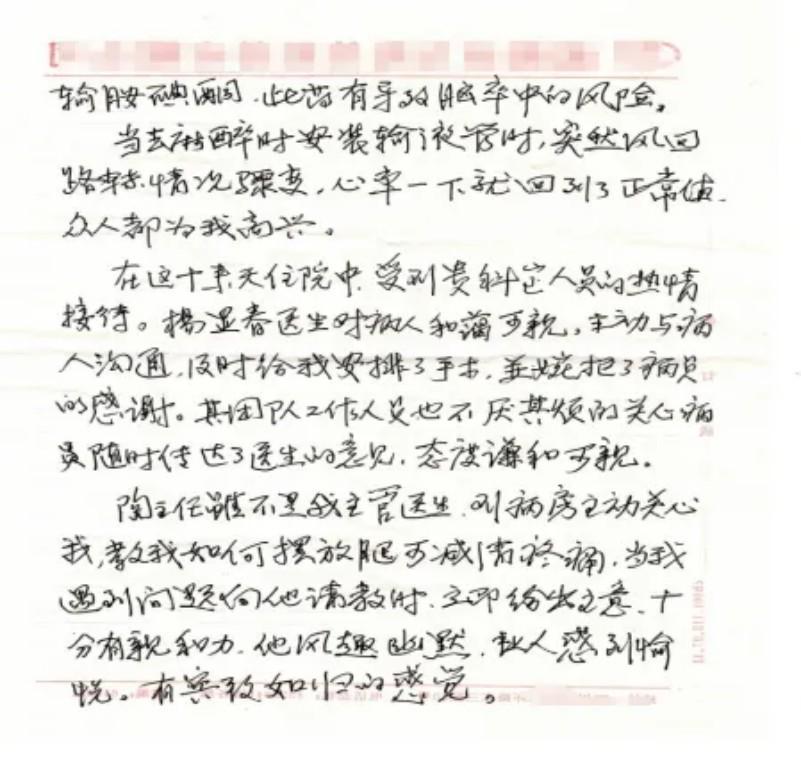 输胺碘酮.此药有导致脑卒中的风险。
当去麻醉时安装输液管时,突然风回
路转情况骤变,心率一下就回到了正常值.
众人都为我高兴。
在这十来天住院中,受到贵科室人员的热情
接待。杨显春医生对病人和蔼可亲,主动与病
人沟通,及时给我安排了手术,并婉拒了病员
的感谢。其团队工作人员也不厌其烦的关心病
员随时传达了医生的意见,态度谦和可亲。
陶主任虽不是我主管医生,到病房主动关心
我,教我如何摆放腿可减清疼痛,当我
遇到问题向他请教时,立即给出主意,十
分有亲和力.他风趣幽默,让人感到愉
悦,有宾致如归的感觉。